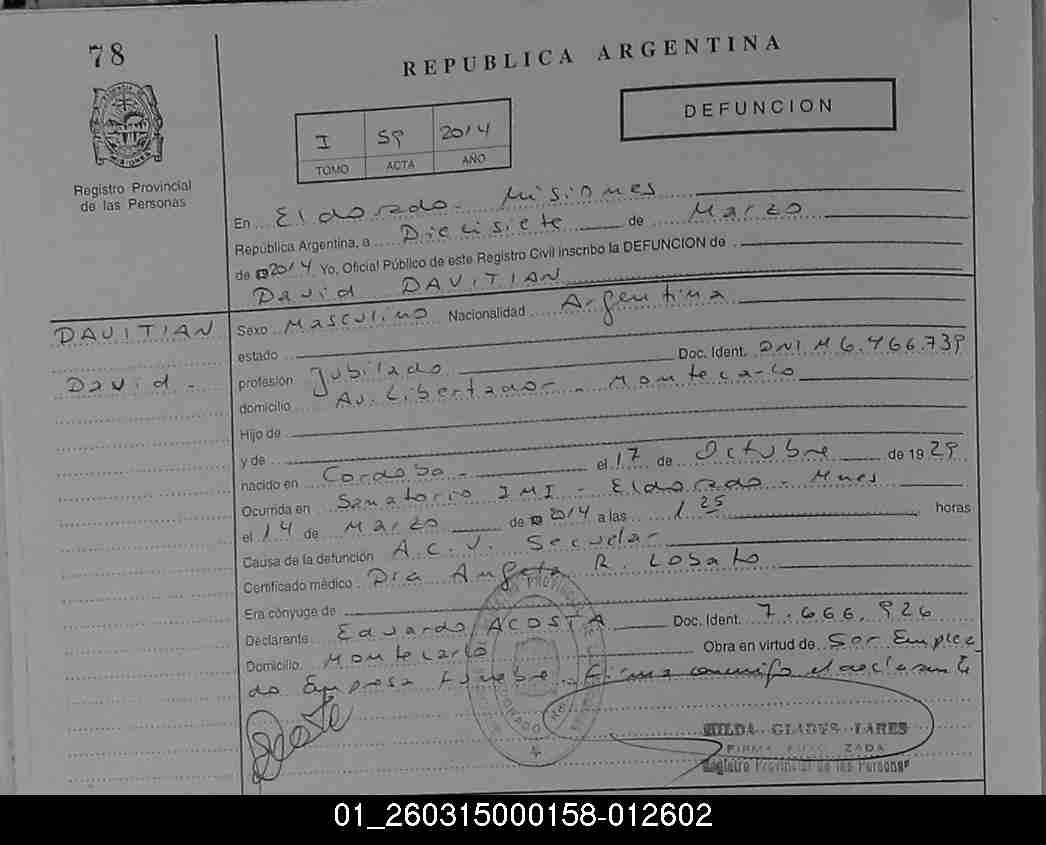 78
REPUBLICA ARGENTINA
DEFUNCION
I 59 2014
TOMO ACTA AÑO
Registro Provincial
de las Personas
En Eldorado - Misiones
República Argentina, a Diecisiete de Marzo
de 2014 Yo, Oficial Público de este Registro Civil inscribo la DEFUNCION de
David DAVITIAN
DAVITIAN
David -
Sexo Masculino Nacionalidad Argentina
estado
profesión Jubilado Doc. Ident. DNI M 6.466.739
domicilio Av. Libertador - Montecarlo
Hijo de
y de
nacido en Cordoba - el 17 de Octubre de 1929
Ocurrida en Sanatorio IMI - Eldorado - Mnes
el 14 de Marzo de 2014 a las 1 25 horas
Causa de la defunción A.C.V. Secuelar
Certificado médico Dra Angela R. Lobato
Era cónyuge de
Declarante Eduardo ACOSTA Doc. Ident. 7.666.926
Domicilio Montecarlo Obra en virtud de Ser Emplea
do Empresa Funebre. Firma conmigo el declarante
HILDA GLADYS LARES
FIRMA AUTORIZADA
Registro Provincial de las Personas
01_260315000158-012602